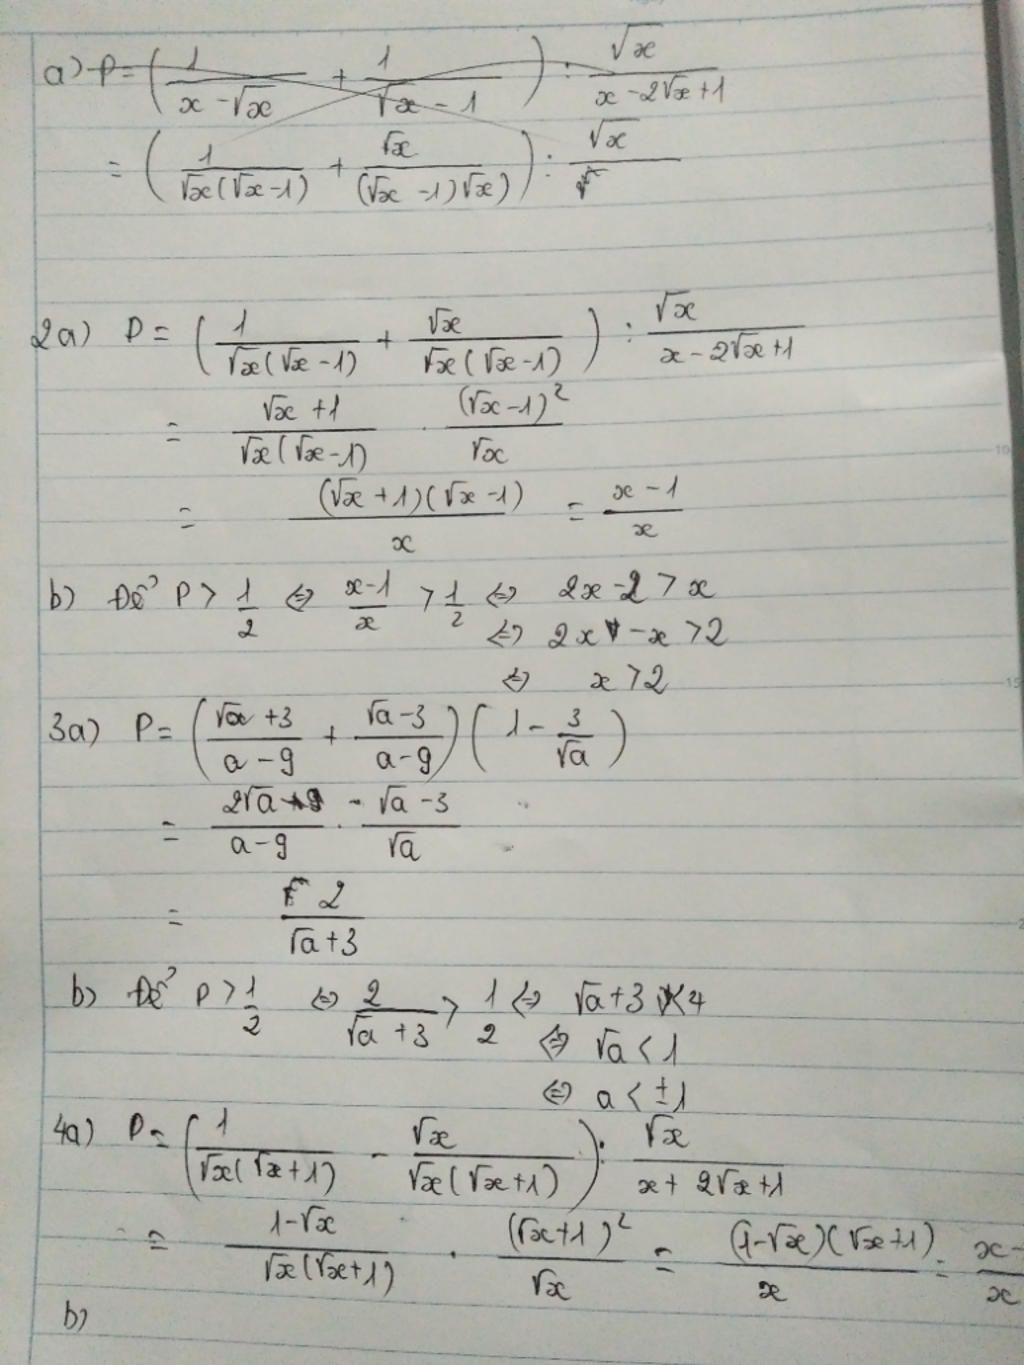 a) P = ( 1/(x - √x) + 1/(√x - 1) ) : √x/(x - 2√x + 1)
= ( 1/(√x(√x - 1)) + √x/((√x - 1)√x) ) : √x/
2a) P = ( 1/(√x(√x - 1)) + √x/(√x(√x - 1)) ) : √x/(x - 2√x + 1)
= (√x + 1)/(√x(√x - 1)) . (√x - 1)²/√x
= (√x + 1)(√x - 1)/x = (x - 1)/x
b) Để P > 1/2 ⇔ (x - 1)/x > 1/2 ⇔ 2x - 2 > x
⇔ 2x - x > 2
⇔ x > 2
3a) P = ( (√a + 3)/(a - 9) + (√a - 3)/(a - 9) ) ( 1 - 3/√a )
= 2√a/(a - 9) . (√a - 3)/√a
= 2/(√a + 3)
b) Để P > 1/2 ⇔ 2/(√a + 3) > 1/2 ⇔ √a + 3 < 4
⇔ √a < 1
⇔ a < ±1
4a) P = ( 1/(√x(√x + 1)) - √x/(√x(√x + 1)) ) : √x/(x + 2√x + 1)
= (1 - √x)/(√x(√x + 1)) . (√x + 1)²/√x = (1 - √x)(√x + 1)/x = (x -/x
b)